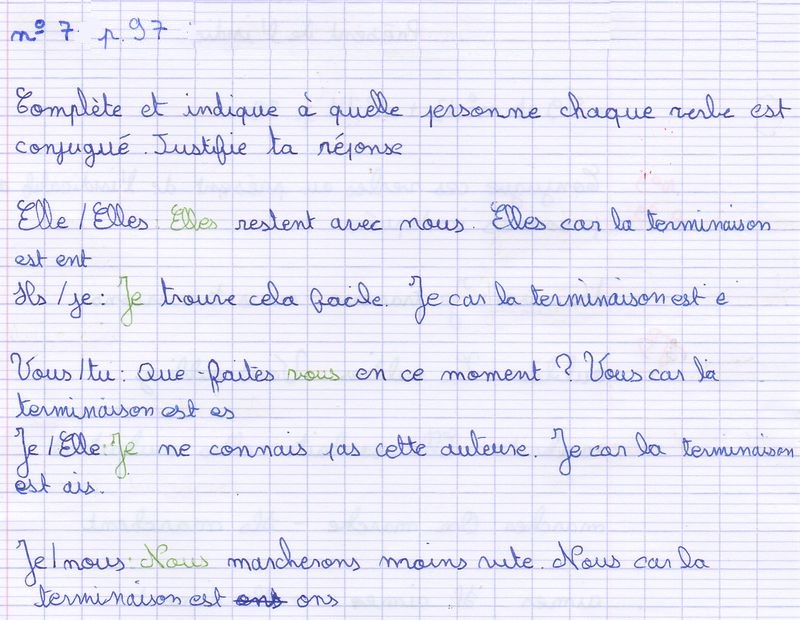 n° 7 p.97
Complète et indique à quelle personne chaque verbe est
conjugué. Justifie ta réponse
Elle / Elles : Elles restent avec nous. Elles car la terminaison
est ent
Ils / je : Je trouve cela facile. Je car la terminaison est e
Vous / tu : Que - faites vous en ce moment ? Vous car la
terminaison est es
Je / Elle : Je ne connais pas cette auteure. Je car la terminaison
est ais.
Je / nous : Nous marcherons moins vite. Nous car la
terminaison est ons